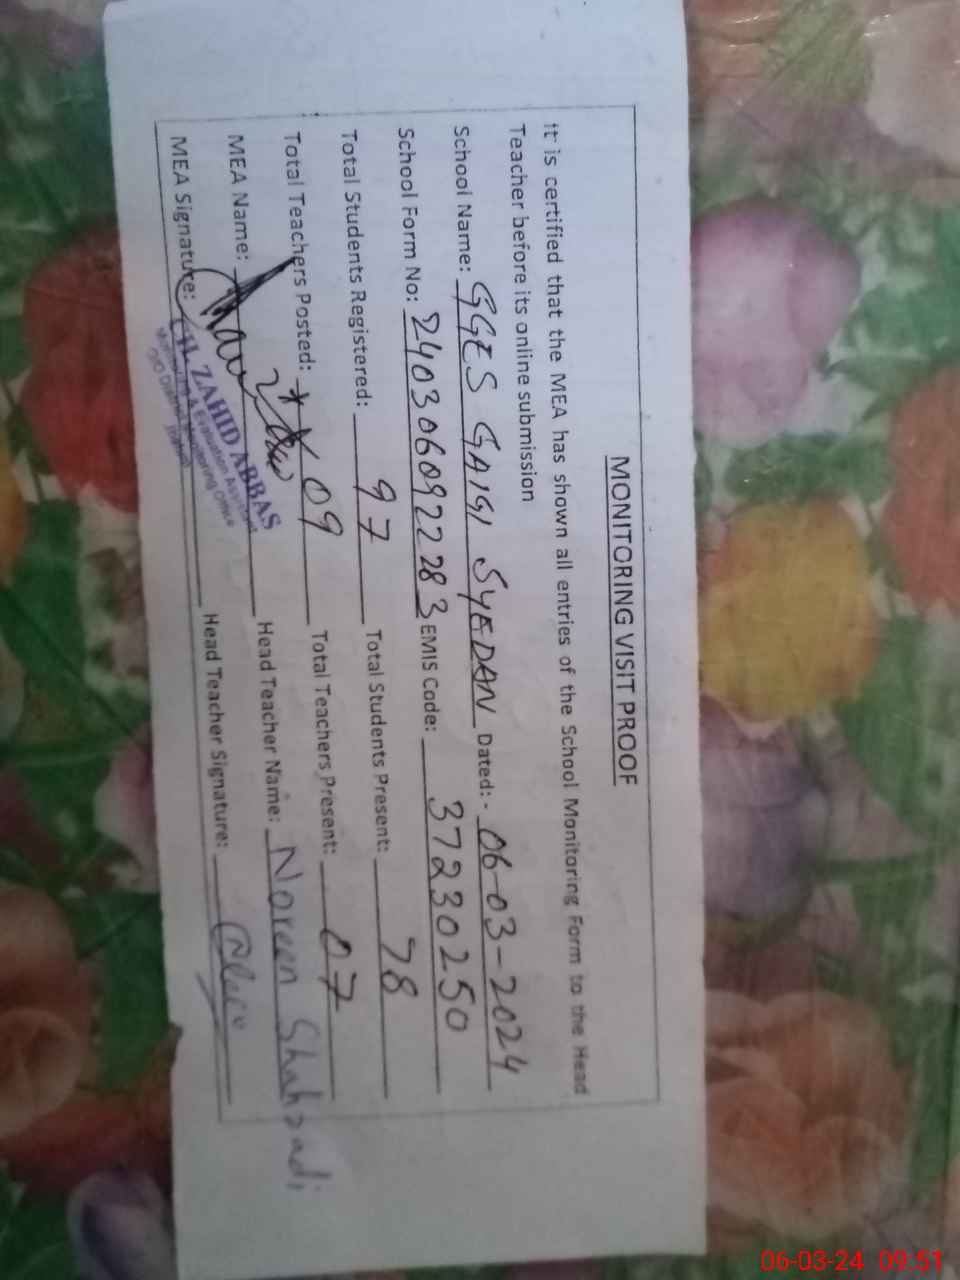 MONITORING VISIT PROOF
It is certified that the MEA has shown all entries of the School Monitoring Form to the Head
Teacher before its online submission
School Name: GGES GAIGI SYEDAN Dated: - 06-03-2024
School Form No: 2403060922283 EMIS Code: 37230250
Total Students Registered: 97 Total Students Present: 78
Total Teachers Posted: 09 Total Teachers Present: 07
MEA Name: Head Teacher Name: Noreen Shahzadi
MEA Signature: Head Teacher Signature:
CH. ZAHID ABBAS
Monitoring & Evaluation Assistant
O/O District Monitoring Office
06-03-24 09:51